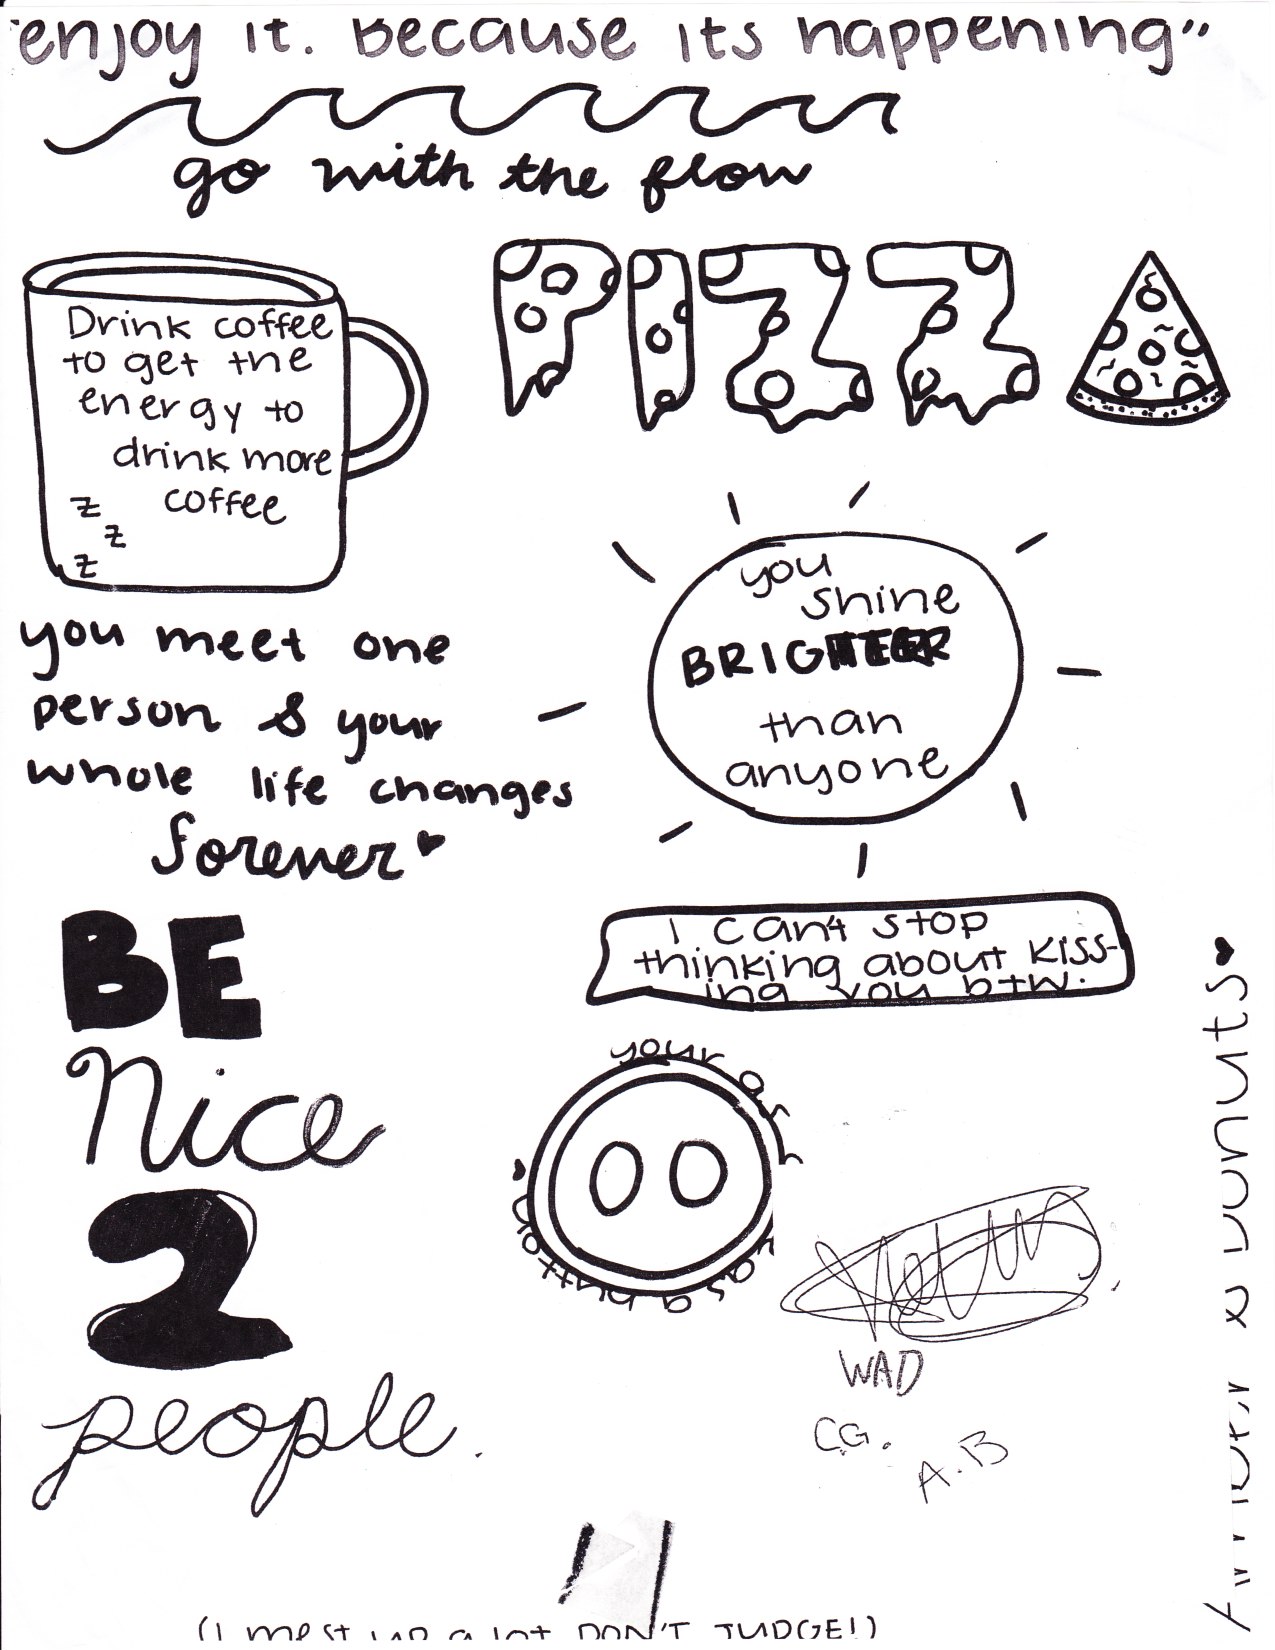 "enjoy it. Because its happening"
go with the flow
Drink coffee
to get the
energy to
drink more
coffee
z
z
z
PIZZ
you
shine
BRIGHTER
than
anyone
you meet one
person & your
whole life changes
forever
BE
Nice
2
people.
I can't stop
thinking about kiss-
ing you btw.
your as
as a button
WAD
C.G.
A.B
& Donuts
(I mest up a lot DON'T JUDGE!)